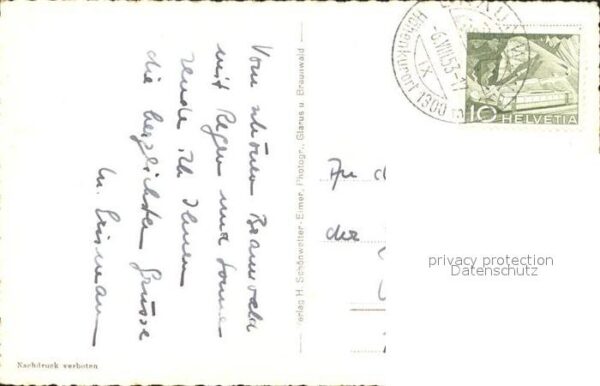 Vom schönen Braunwald
mit Regen und Sonne
sende ich Ihnen
die herzlichsten Grüsse
Verlag H. Schönwetter-Elmer, Photogr., Glarus u. Braunwald
Nachdruck verboten
Höhenkurort 1300 m
-6.VIII.53-11
IX
10 HELVETIA
An d
der
privacy protection
Datenschutz